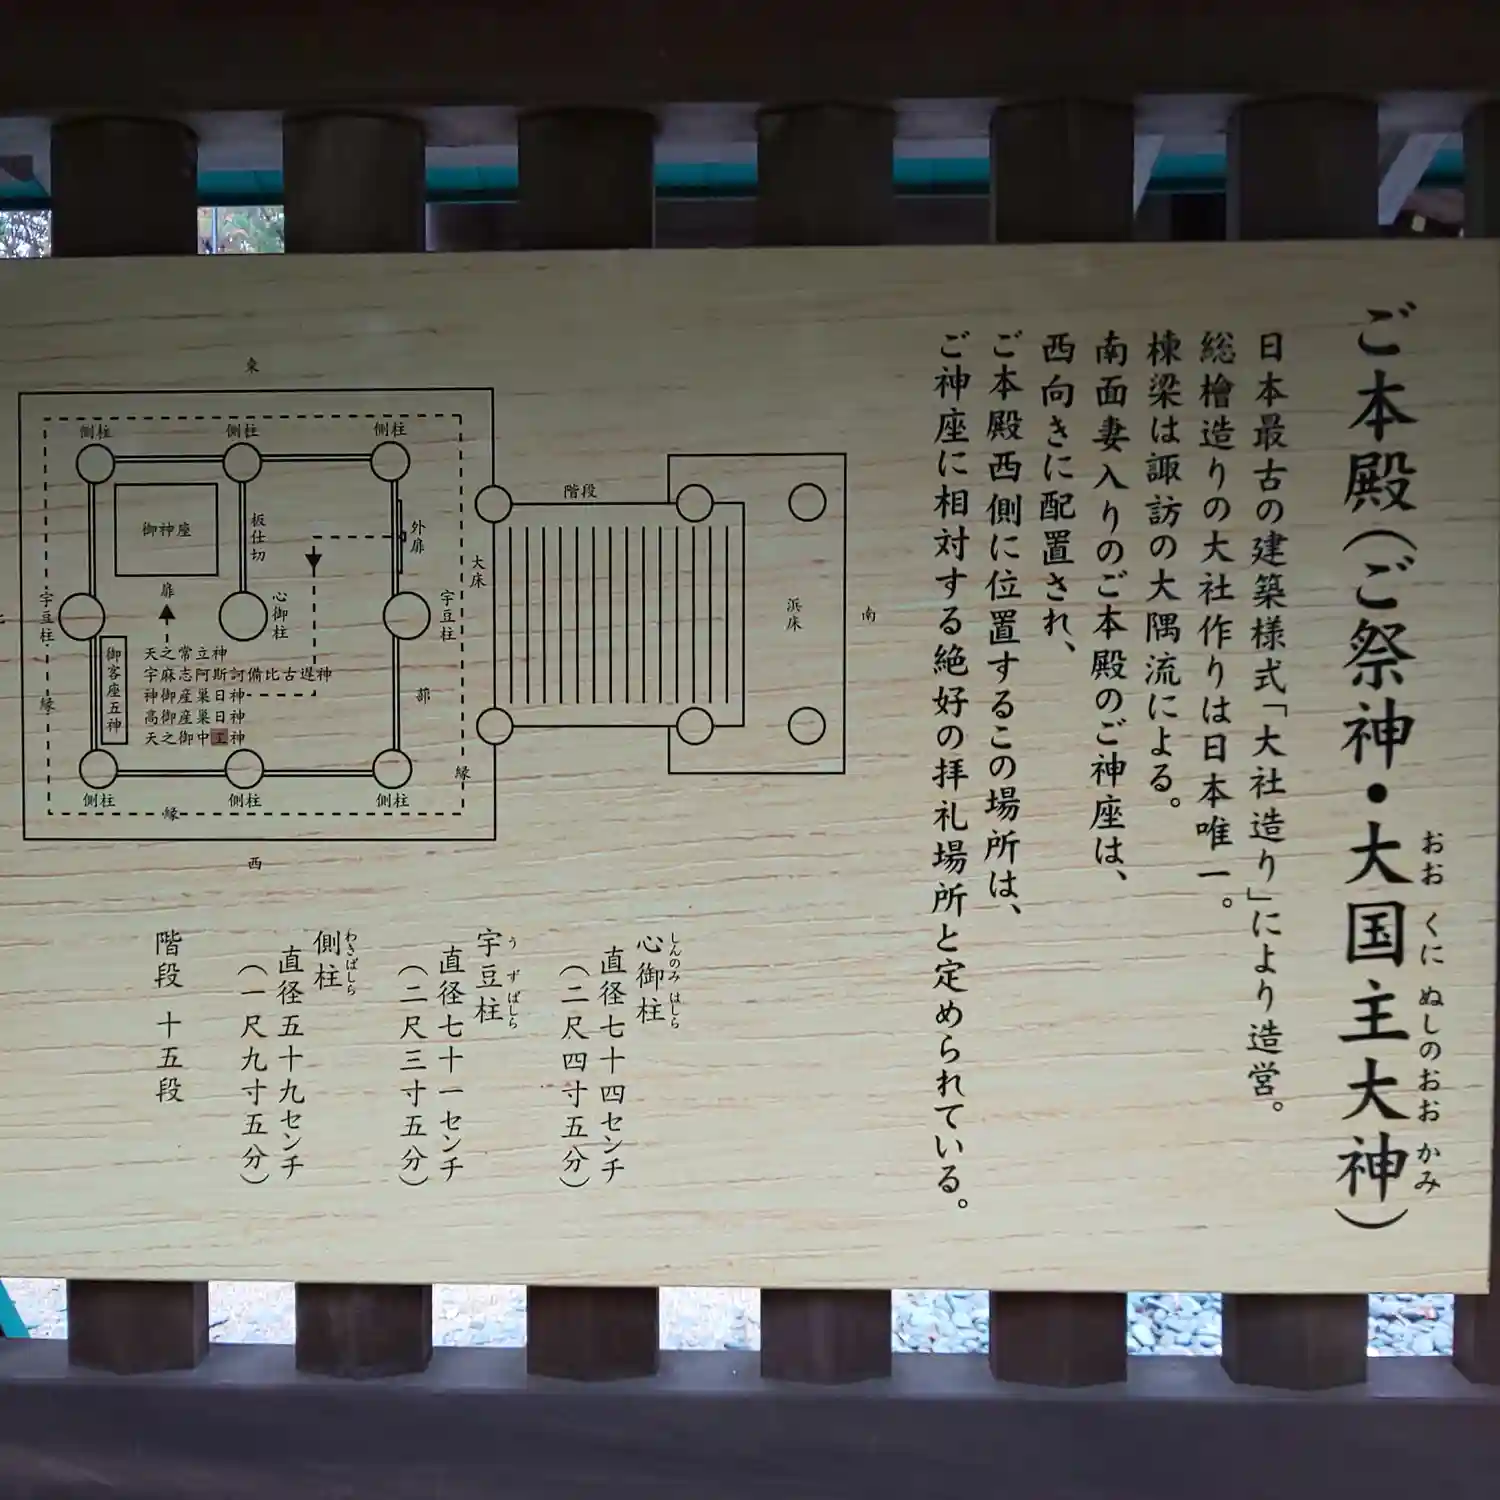 ご本殿(ご祭神・大国主大神)
おお くに ぬしのおお かみ
日本最古の建築様式「大社造り」により造営。
総檜造りの大社作りは日本唯一。
棟梁は諏訪の大隅流による。
南面妻入りのご本殿のご神座は、
西向きに配置され、
ご本殿西側に位置するこの場所は、
ご神座に相対する絶好の拝礼場所と定められている。
東
側柱
側柱
側柱
御神座
板仕切
外扉
扉
宇豆柱
心御柱
宇豆柱
御客座五神
天之常立神
宇麻志阿斯訶備比古遅神
神御産巣日神
高御産巣日神
天之御中主神
蔀
縁
縁
縁
側柱
側柱
側柱
西
大床
階段
浜床
南
心御柱
しんのみ はしら
直径七十四センチ
(二尺四寸五分)
宇豆柱
う ず ばしら
直径七十一センチ
(二尺三寸五分)
側柱
わきばしら
直径五十九センチ
(一尺九寸五分)
階段 十五段